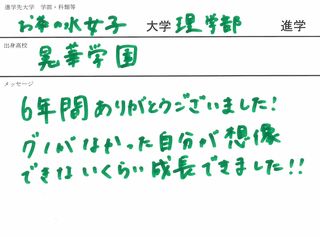 進学先大学 学部・科類等
お茶の水女子 大学 理学部 進学
出身高校
晃華学園
メッセージ
6年間ありがとうございました!
グノがなかった自分が想像
できないくらい成長できました!!